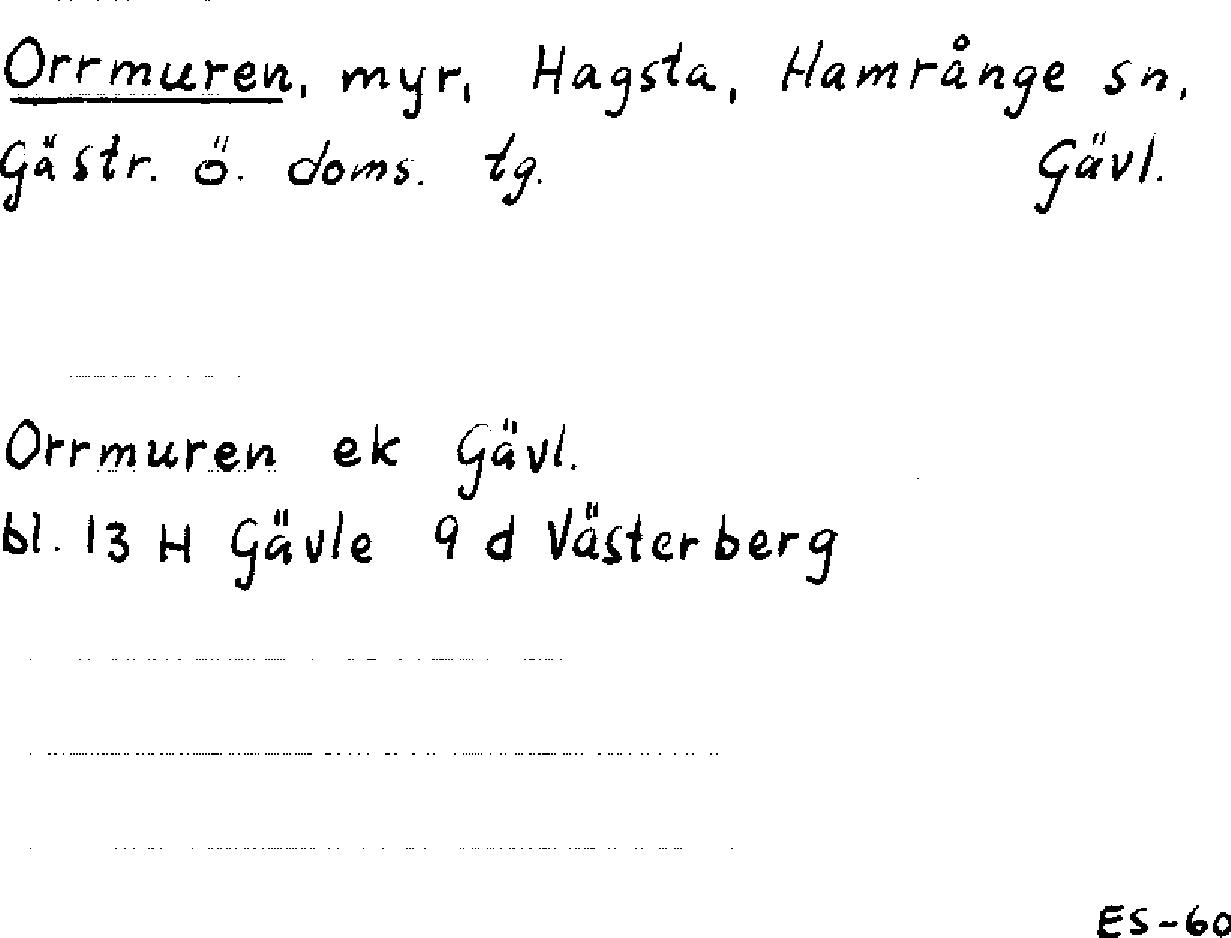 Orrmuren, myr, Hagsta, Hamrånge sn,
Gästr. ö. doms. tg. Gävl.
Orrmuren ek Gävl.
bl. 13 H Gävle 9 d Västerberg
ES-60